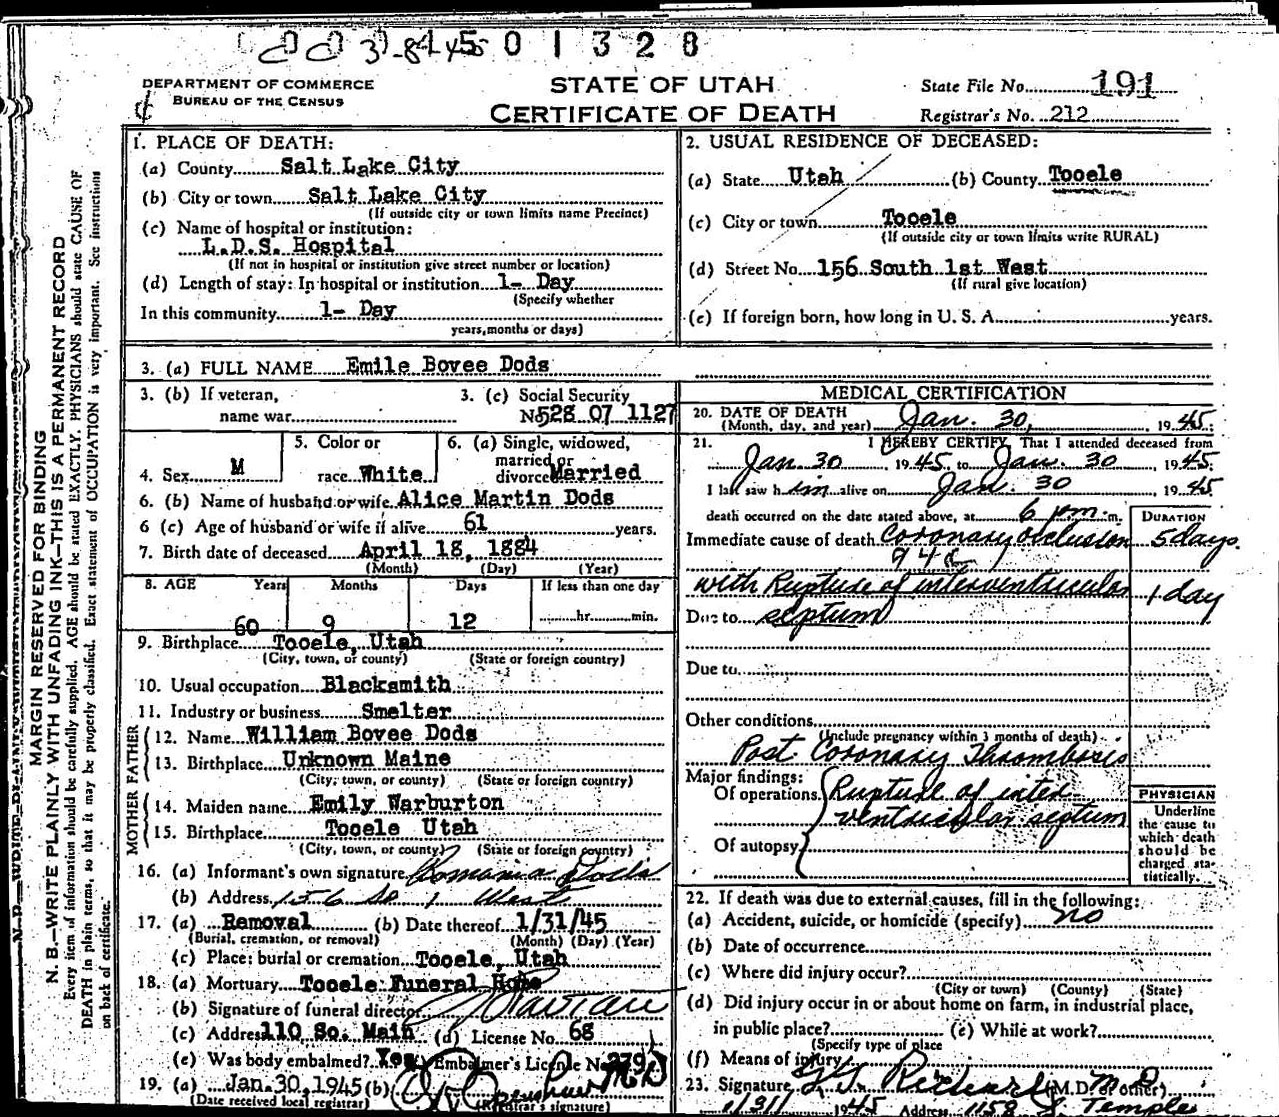 01328
DEPARTMENT OF COMMERCE
BUREAU OF THE CENSUS
STATE OF UTAH
CERTIFICATE OF DEATH
State File No. 191
Registrar's No. 212
MARGIN RESERVED FOR BINDING
N. B.—WRITE PLAINLY WITH UNFADING INK—THIS IS A PERMANENT RECORD
Every item of information should be carefully supplied. AGE should be stated EXACTLY. PHYSICIANS should state CAUSE OF
DEATH in plain terms, so that it may be properly classified. Exact statement of OCCUPATION is very important. See instructions
on back of certificate.
1. PLACE OF DEATH:
(a) County Salt Lake City
(b) City or town Salt Lake City
(If outside city or town limits name Precinct)
(c) Name of hospital or institution:
L.D.S. Hospital
(If not in hospital or institution give street number or location)
(d) Length of stay: In hospital or institution 1- Day
(Specify whether
In this community 1- Day
years, months or days)
2. USUAL RESIDENCE OF DECEASED:
(a) State Utah (b) County Tooele
(c) City or town Tooele
(If outside city or town limits write RURAL)
(d) Street No. 156 South 1st West
(If rural give location)
(e) If foreign born, how long in U. S. A. years.
3. (a) FULL NAME Emile Bovee Dods
3. (b) If veteran, name war
3. (c) Social Security No. 528 07 1127
4. Sex M
5. Color or race White
6. (a) Single, widowed, married or divorced Married
6. (b) Name of husband or wife Alice Martin Dods
6 (c) Age of husband or wife if alive 61 years.
7. Birth date of deceased April 18, 1884
(Month) (Day) (Year)
8. AGE Years Months Days If less than one day
60 9 12 hr. min.
9. Birthplace Tooele, Utah
(City, town, or county) (State or foreign country)
10. Usual occupation Blacksmith
11. Industry or business Smelter
FATHER
12. Name William Bovee Dods
13. Birthplace Unknown Maine
(City, town, or county) (State or foreign country)
MOTHER
14. Maiden name Emily Warburton
15. Birthplace Tooele Utah
(City, town, or county) (State or foreign country)
16. (a) Informant's own signature Romania Dods
(b) Address 156 So 1 West
17. (a) Removal (b) Date thereof 1/31/45
(Burial, cremation, or removal) (Month) (Day) (Year)
(c) Place: burial or cremation Tooele, Utah
18. (a) Mortuary Tooele Funeral Home
(b) Signature of funeral director
(c) Address 110 So. Main (d) License No. 68
(e) Was body embalmed? Yes Embalmer's License No. 279
19. (a) Jan. 30, 1945 (b)
(Date received local registrar) (Registrar's signature)
MEDICAL CERTIFICATION
20. DATE OF DEATH
(Month, day, and year) Jan. 30, 1945.
21. I HEREBY CERTIFY, That I attended deceased from
Jan 30 1945, to Jan. 30 1945.
I last saw him alive on Jan. 30 1945
death occurred on the date stated above, at 6 pm m.
DURATION
Immediate cause of death Coronary Occlusion 5 days.
94a
with Rupture of interventricular 1 day
Due to septum
Due to
Other conditions
(Include pregnancy within 3 months of death)
Post Coronary Thrombosis
Major findings:
Of operations Rupture of inter
ventricular septum
Of autopsy
PHYSICIAN
Underline
the cause to
which death
should be
charged sta-
tistically.
22. If death was due to external causes, fill in the following:
(a) Accident, suicide, or homicide (specify) no
(b) Date of occurrence
(c) Where did injury occur?
(City or town) (County) (State)
(d) Did injury occur in or about home on farm, in industrial place,
in public place? (e) While at work?
(Specify type of place
(f) Means of injury
23. Signature Richards (M.D. or other) M D
1945 Address 1158 S. Temple